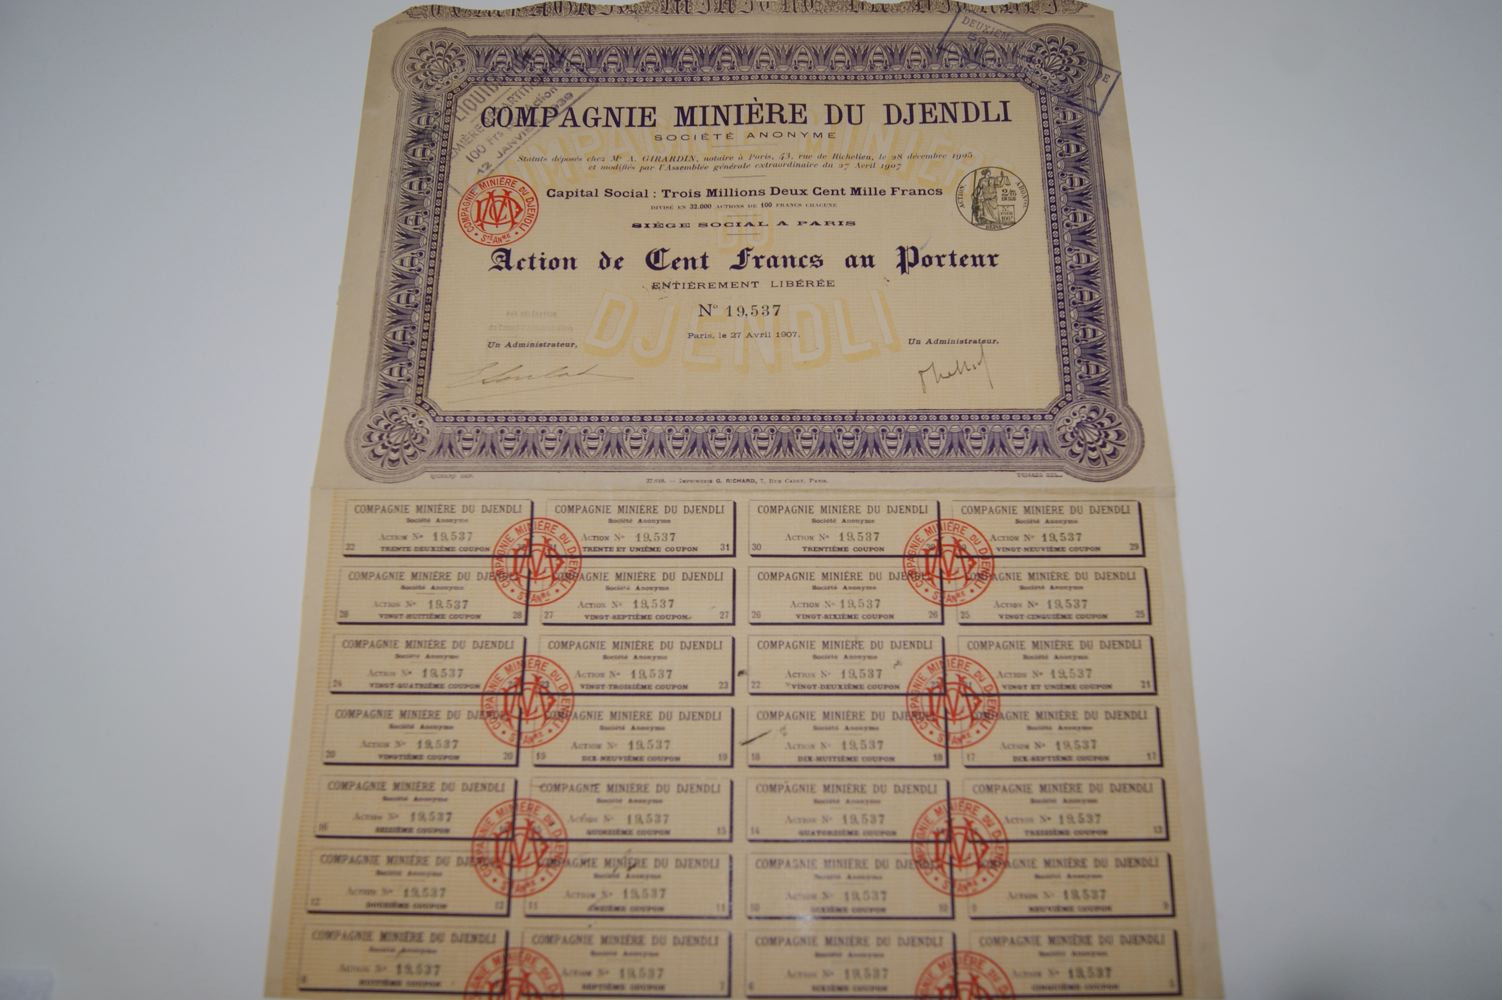 COMPAGNIE MINIÈRE DU DJENDLI
SOCIÉTÉ ANONYME
Statuts déposés chez Me A. GIRARDIN, notaire à Paris, 43, rue de Richelieu, le 28 décembre 1905
et modifiés par l'Assemblée générale extraordinaire du 27 Avril 1907
Capital Social : Trois Millions Deux Cent Mille Francs
DIVISÉ EN 32.000 ACTIONS DE 100 FRANCS CHACUNE
SIÈGE SOCIAL A PARIS
Action de Cent Francs au Porteur
ENTIÈREMENT LIBÉRÉE
No 19,537
Paris, le 27 Avril 1907.
Un Administrateur,
Un Administrateur,
COMPAGNIE MINIÈRE DU DJENDLI
STE ANME
100 Frs
12 JANVIER
IMPRIMERIE G. RICHARD, 7, RUE CADET, PARIS.
COMPAGNIE MINIÈRE DU DJENDLI COMPAGNIE MINIÈRE DU DJENDLI COMPAGNIE MINIÈRE DU DJENDLI COMPAGNIE MINIÈRE DU DJENDLI
Société Anonyme Société Anonyme Société Anonyme Société Anonyme
ACTION No 19,537 ACTION No 19,537 ACTION No 19,537 ACTION No 19,537
32 TRENTE DEUXIÈME COUPON TRENTE ET UNIÈME COUPON 31 30 TRENTIÈME COUPON VINGT-NEUVIÈME COUPON 29
COMPAGNIE MINIÈRE DU DJENDLI COMPAGNIE MINIÈRE DU DJENDLI COMPAGNIE MINIÈRE DU DJENDLI COMPAGNIE MINIÈRE DU DJENDLI
Société Anonyme Société Anonyme Société Anonyme Société Anonyme
ACTION No 19,537 ACTION No 19,537 ACTION No 19,537 ACTION No 19,537
28 VINGT-HUITIÈME COUPON 28 27 VINGT-SEPTIÈME COUPON 27 26 VINGT-SIXIÈME COUPON 26 25 VINGT-CINQUIÈME COUPON 25
COMPAGNIE MINIÈRE DU DJENDLI COMPAGNIE MINIÈRE DU DJENDLI COMPAGNIE MINIÈRE DU DJENDLI COMPAGNIE MINIÈRE DU DJENDLI
Société Anonyme Société Anonyme Société Anonyme Société Anonyme
ACTION No 19,537 ACTION No 19,537 ACTION No 19,537 ACTION No 19,537
24 VINGT-QUATRIÈME COUPON VINGT-TROISIÈME COUPON 23 22 VINGT-DEUXIÈME COUPON VINGT ET UNIÈME COUPON 21
COMPAGNIE MINIÈRE DU DJENDLI COMPAGNIE MINIÈRE DU DJENDLI COMPAGNIE MINIÈRE DU DJENDLI COMPAGNIE MINIÈRE DU DJENDLI
Société Anonyme Société Anonyme Société Anonyme Société Anonyme
ACTION No 19,537 ACTION No 19,537 ACTION No 19,537 ACTION No 19,537
20 VINGTIÈME COUPON 20 19 DIX-NEUVIÈME COUPON 19 18 DIX-HUITIÈME COUPON 18 17 DIX-SEPTIÈME COUPON 17
COMPAGNIE MINIÈRE DU DJENDLI COMPAGNIE MINIÈRE DU DJENDLI COMPAGNIE MINIÈRE DU DJENDLI COMPAGNIE MINIÈRE DU DJENDLI
Société Anonyme Société Anonyme Société Anonyme Société Anonyme
ACTION No 19,537 ACTION No 19,537 ACTION No 19,537 ACTION No 19,537
16 SEIZIÈME COUPON QUINZIÈME COUPON 15 14 QUATORZIÈME COUPON TREIZIÈME COUPON 13
COMPAGNIE MINIÈRE DU DJENDLI COMPAGNIE MINIÈRE DU DJENDLI COMPAGNIE MINIÈRE DU DJENDLI COMPAGNIE MINIÈRE DU DJENDLI
Société Anonyme Société Anonyme Société Anonyme Société Anonyme
ACTION No 19,537 ACTION No 19,537 ACTION No 19,537 ACTION No 19,537
12 DOUZIÈME COUPON 12 11 ONZIÈME COUPON 11 10 DIXIÈME COUPON 10 9 NEUVIÈME COUPON 9
COMPAGNIE MINIÈRE DU DJENDLI COMPAGNIE MINIÈRE DU DJENDLI COMPAGNIE MINIÈRE DU DJENDLI COMPAGNIE MINIÈRE DU DJENDLI
Société Anonyme Société Anonyme Société Anonyme Société Anonyme
ACTION No 19,537 ACTION No 19,537 ACTION No 19,537 ACTION No 19,537
8 HUITIÈME COUPON SEPTIÈME COUPON 7 6 SIXIÈME COUPON CINQUIÈME COUPON 5